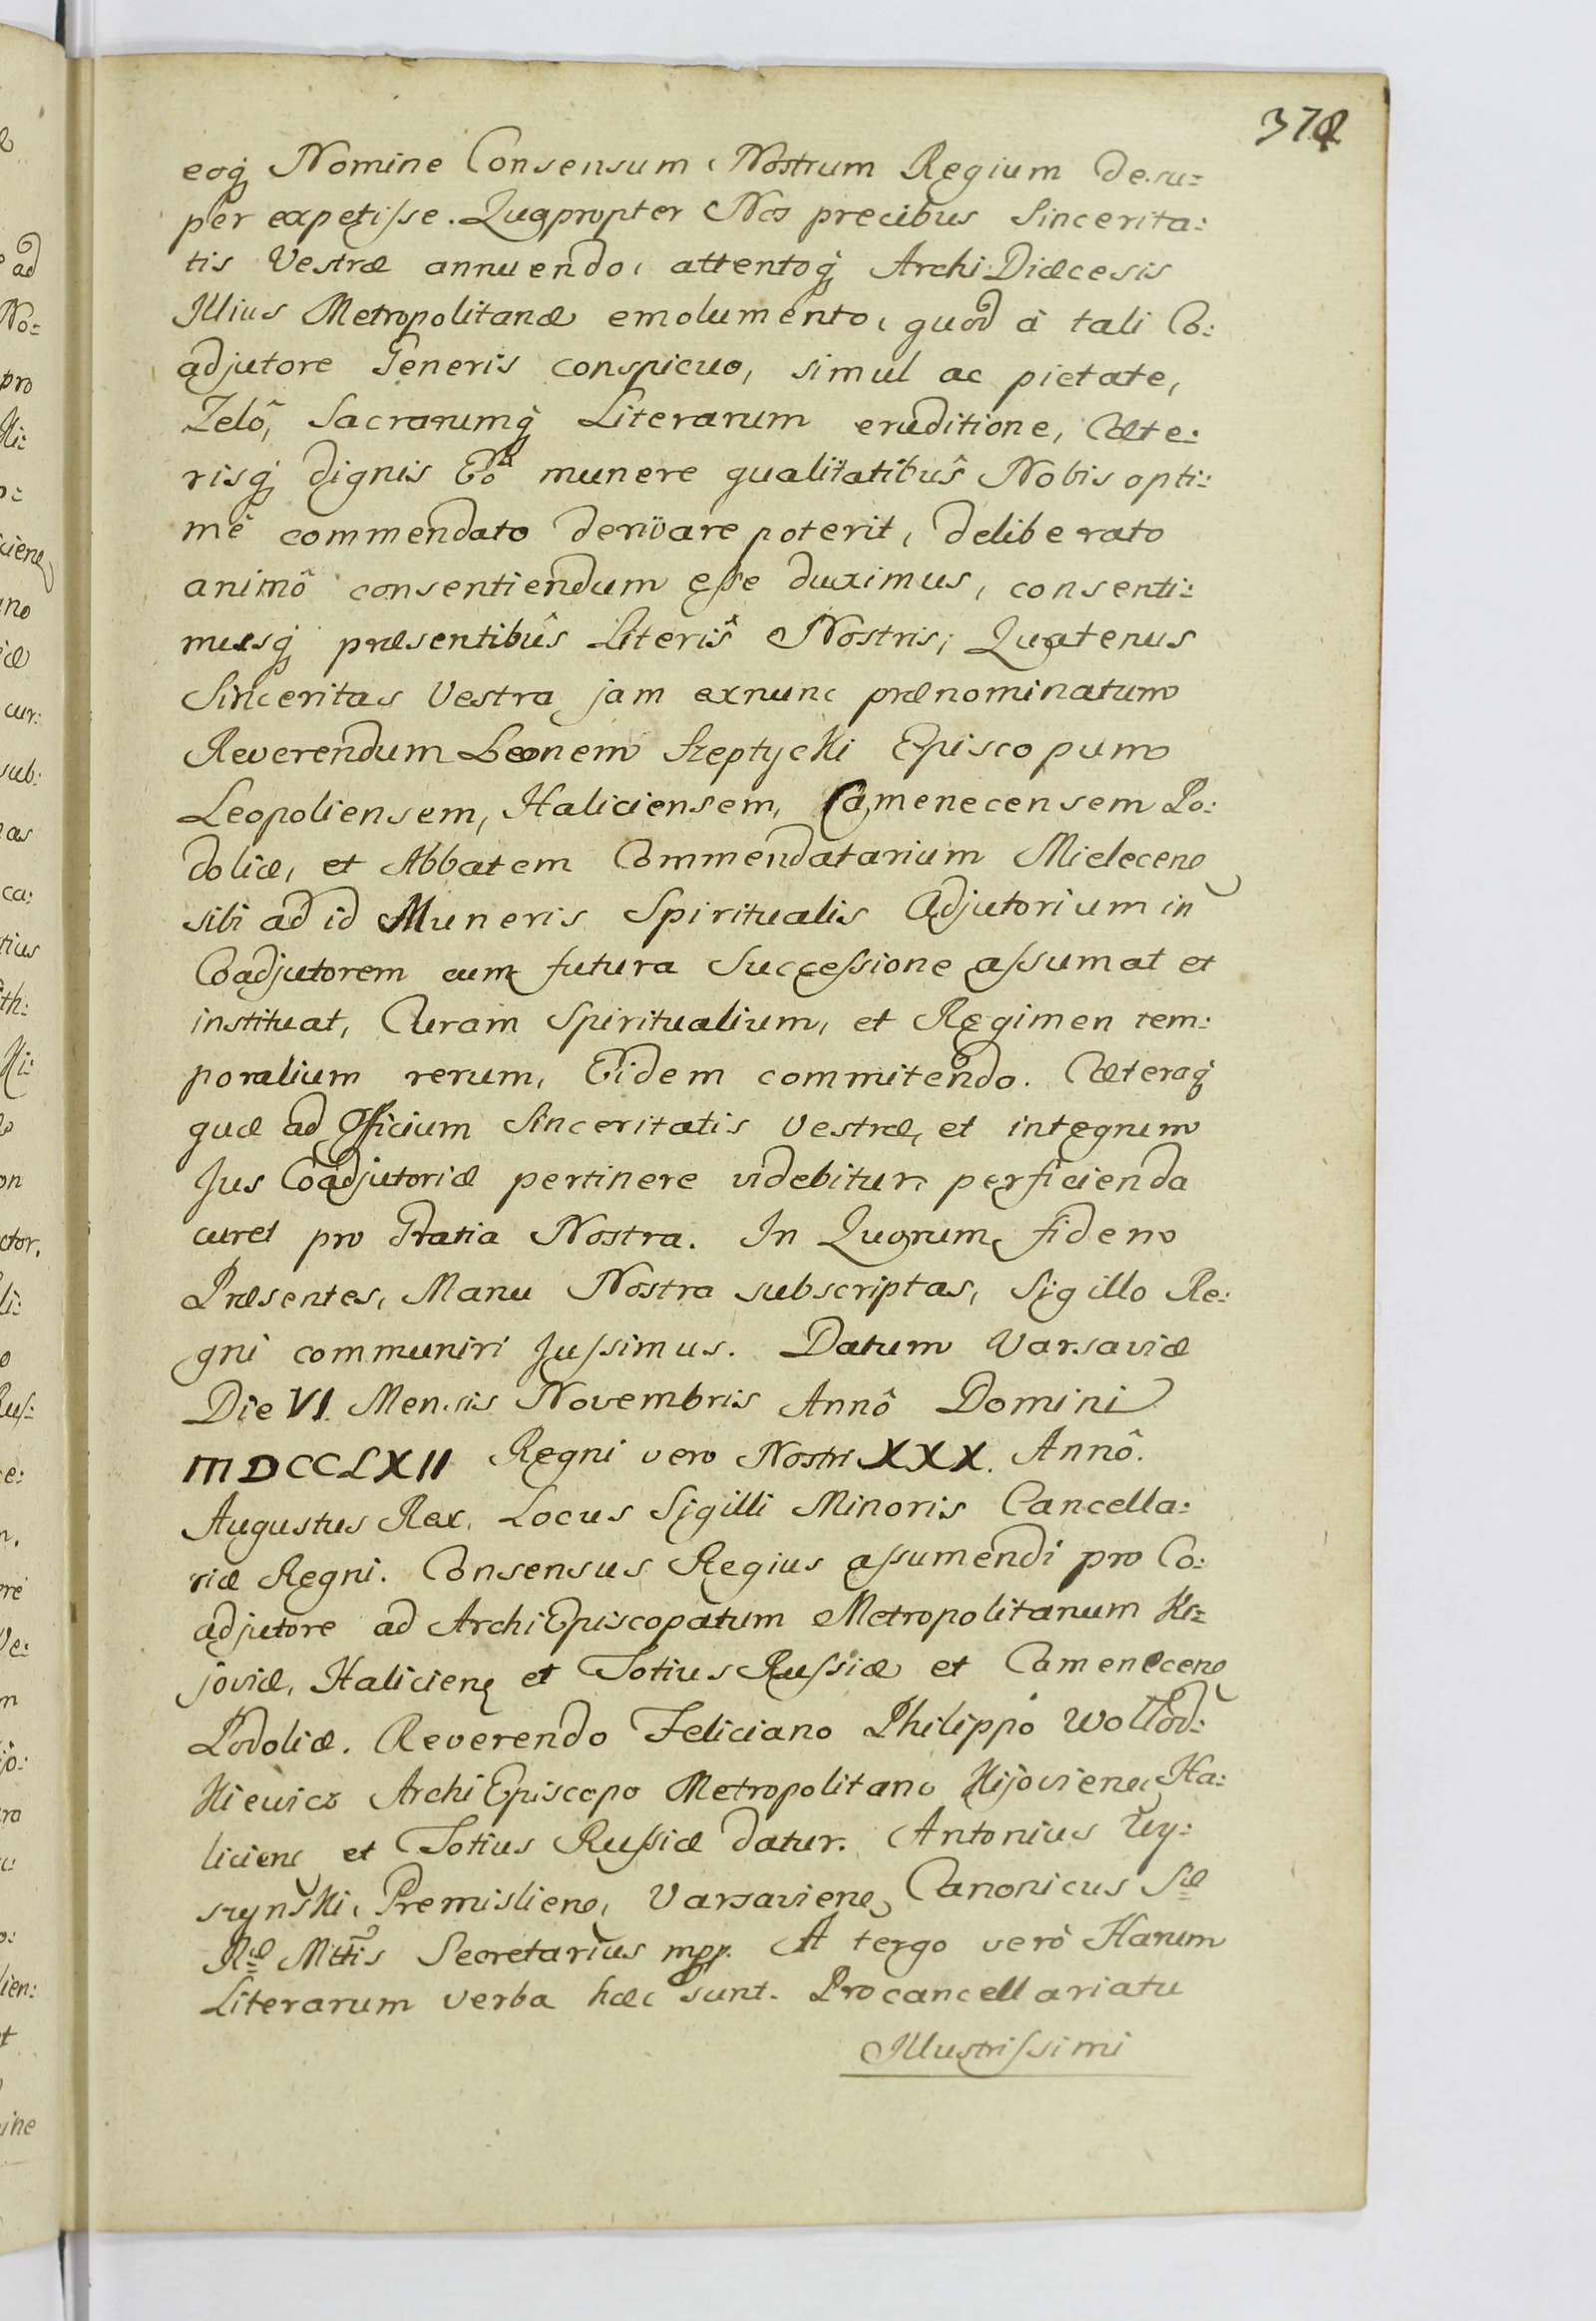 374
eoq̃ Nomine Consensum Nostrum Regium desu=
per expetisse. Quapropter Nos precibus Sincerita:
tis Vestræ annuendo, attentoq̃ Archi Diæcesis
Illius Metropolitanæ emolumento, quod à tali Co:
adjutore Generis conspicuo, simul ac pietate,
Zelô, Sacrarumq̃ Literarum eruditione, Cæte:
risq̃ dignis Eo munere qualitatibûs Nobis opti:
mè commendato derivare poterit, deliberato
animô consentiendum esse duximus, consenti:
musq̃ præsentibûs Literis Nostris, Quatenus
Sinceritas Vestra jam exnunc prænominatum
Reverendum Leonem Szeptycki Episcopum
Leopoliensem, Haliciensem, Camenecensem Po:
doliæ, et Abbatem Commendatarium Mielecen
sibi ad id Muneris Spiritualis Adjutorium in
Coadjutorem cum futura Successione assumat et
instituat, Curam Spiritualium, et Regimen tem:
poralium rerum, Eidem commitendo. Cæteraq̃
quæ ad Officium Sinceritatis Vestræ, et integrum
Jus Coadjutoriæ pertinere videbitur, perficienda
curet pro Gratia Nostra. In Quorum fidem
Præsentes, Manu Nostra subscriptas, Sigillo Re:
gni communiri Jussimus. Datum Varsaviæ
Die VI. Mensis Novembris Annô Domini
MDCCLXII Regni vero Nostri XXX. Annô.
Augustus Rex. Locus Sigilli Minoris Cancella:
riæ Regni. Consensus Regius assumendi pro Co:
adjutore ad ArchiEpiscopatum Metropolitanum Ki=
joviæ, Halicien et Totius Russiæ et Camenecen
Podoliæ. Reverendo Feliciano Philippo Wołłod:
Kiewicz ArchiEpiscopo Metropolitano Kijovien, Ha:
licien et Totius Russiæ datur. Antonius
Premislien, Varsavien, Canonicus Sæ
Ræ Mttis Secretarius mpp. A tergo verò Harum
Literarum verba hæc sunt. Procancellariatu
Illustrissimi